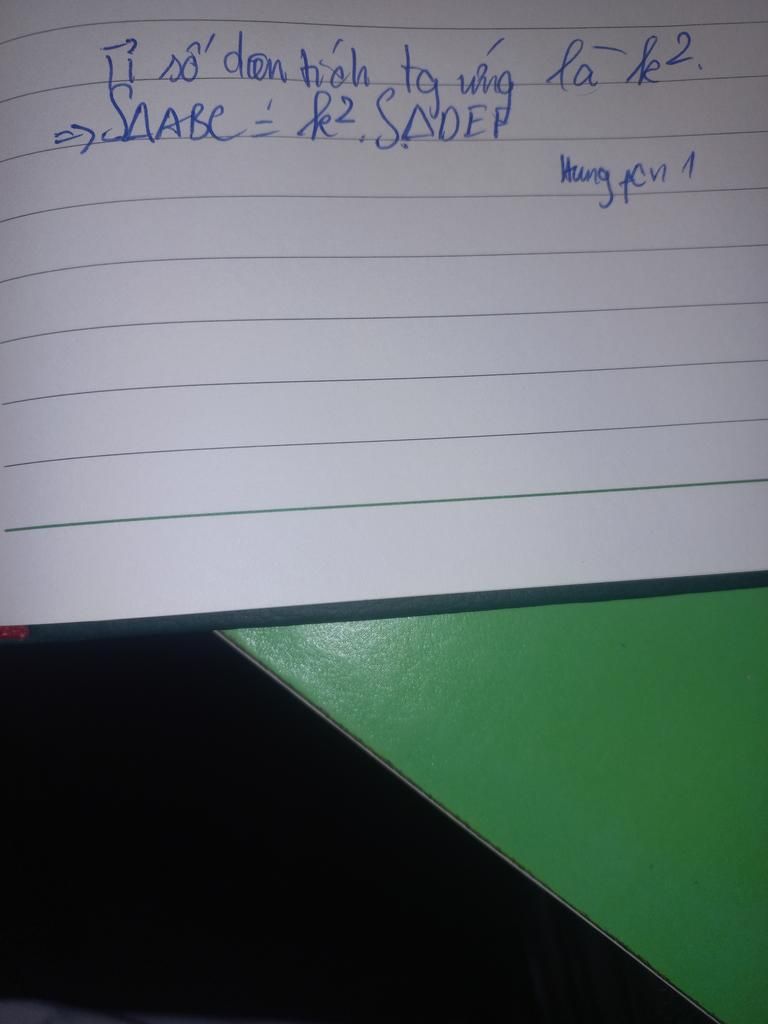 Tỉ số diện tích tg ứng là k².
⇒ SΔABC = k². SΔDEF
Hung
1